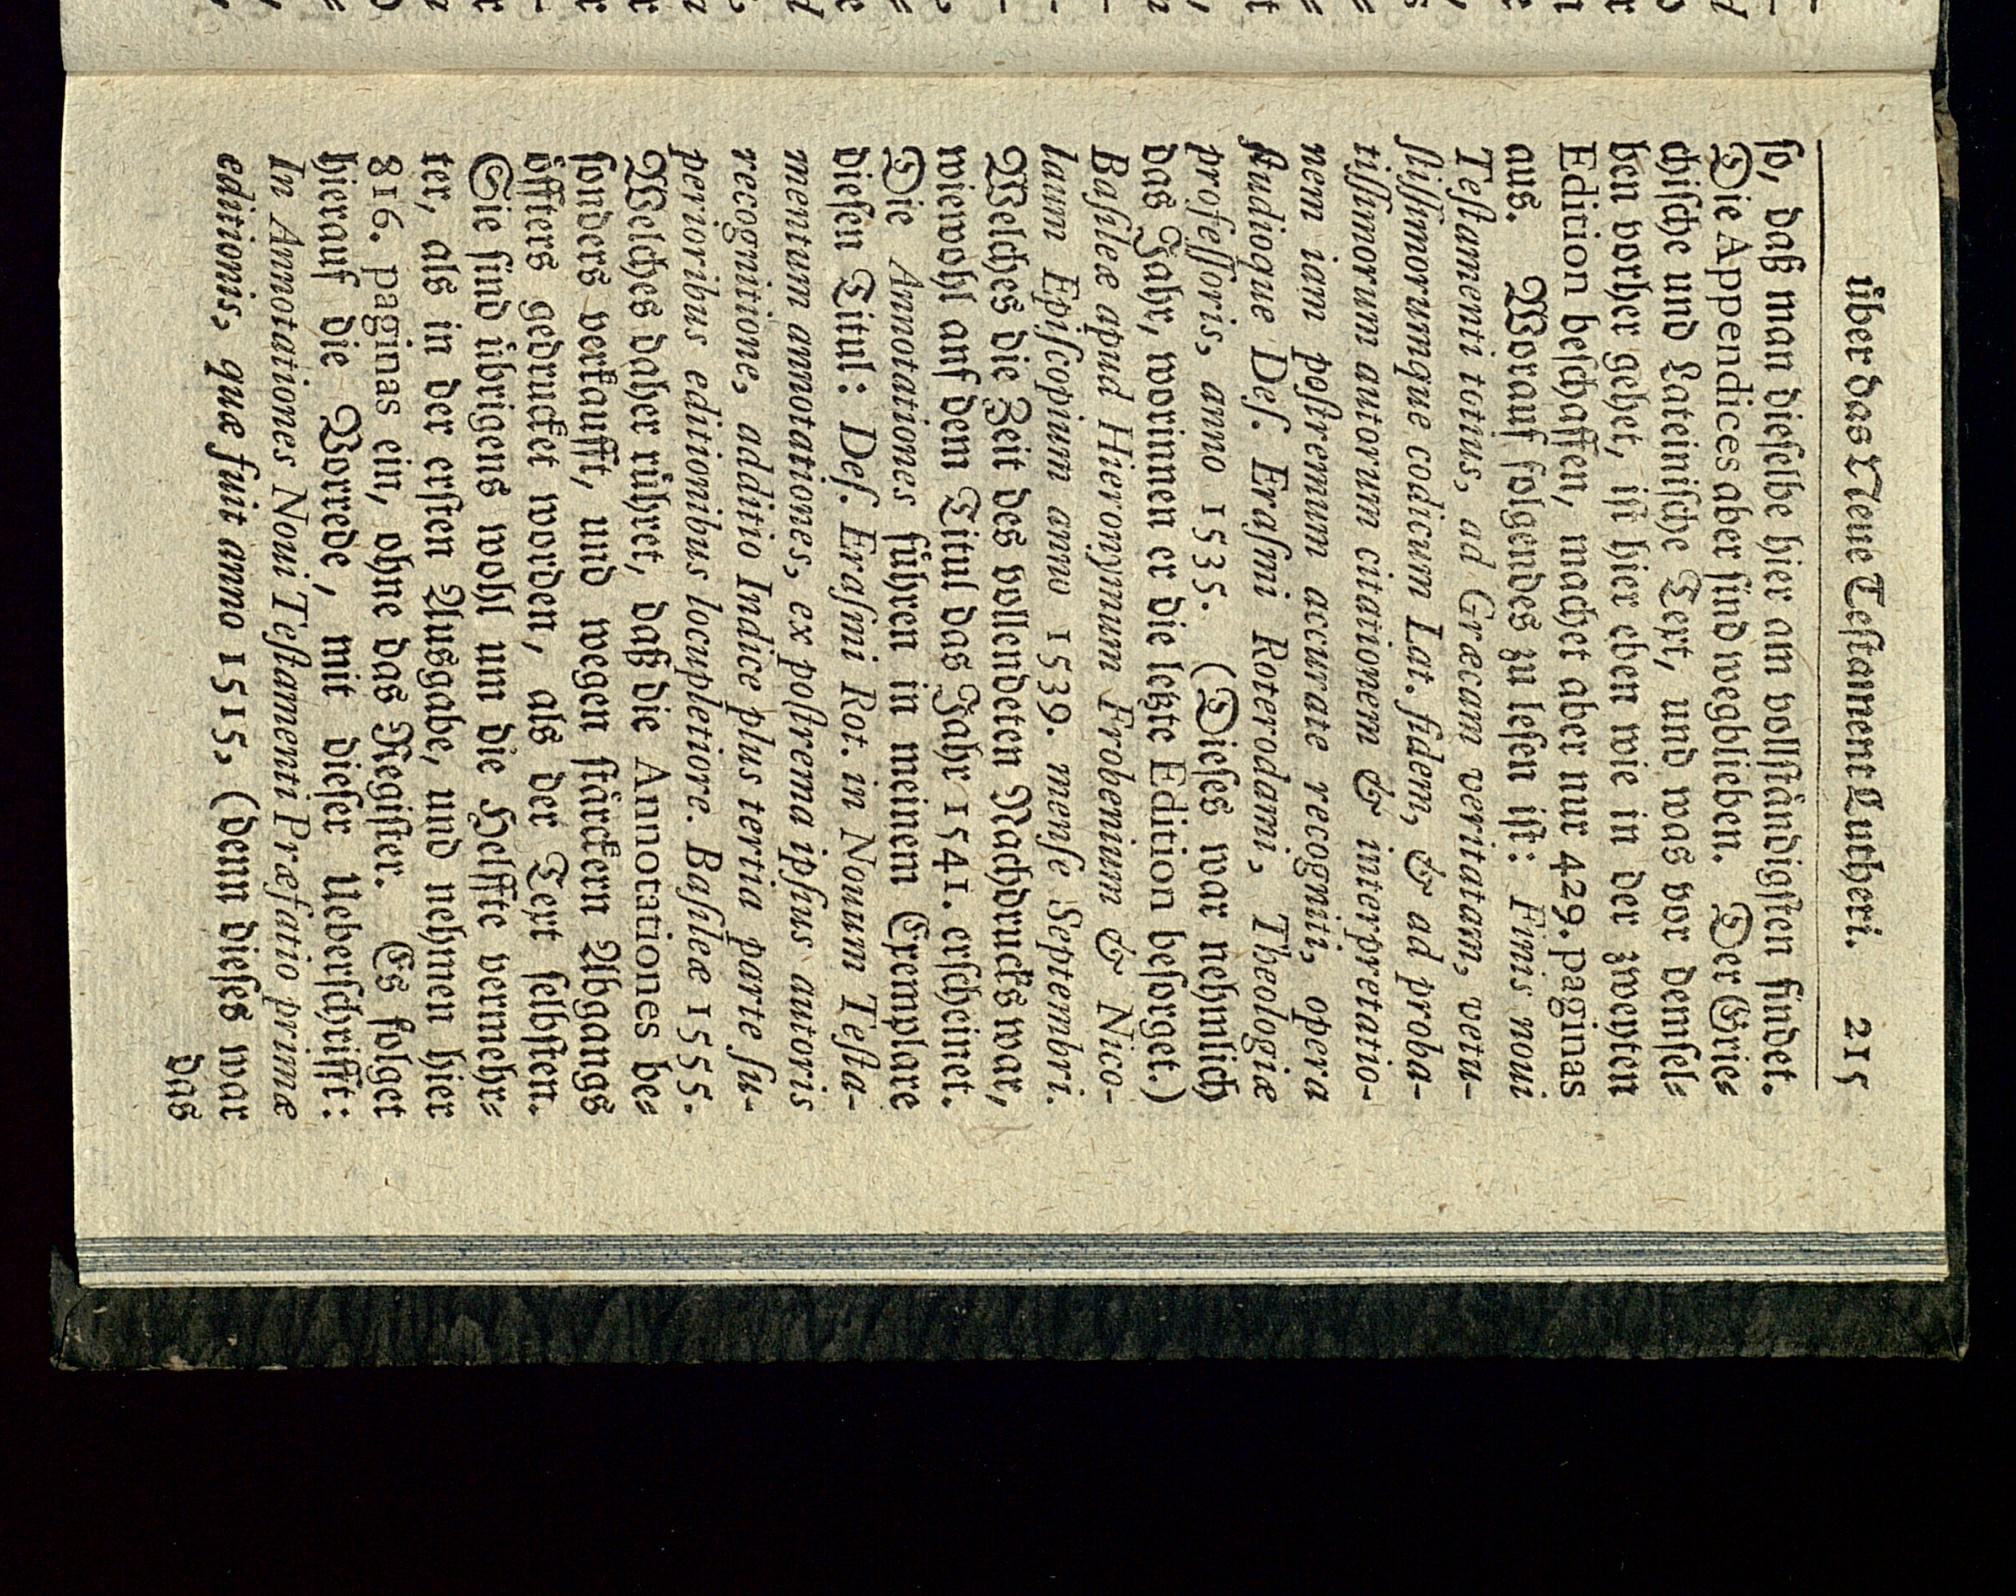 über das Neue Testament Lutheri. 215
ſo, daß man dieſelbe hier am vollſtändigſten findet.
Die Appendices aber ſind weggblieben. Der Grie⸗
chiſche und Lateiniſche Text, und was vor demſel⸗
ben vorher gehet, iſt hier eben wie in der zweyten
Edition beſchaffen, machet aber nur 429. paginas
aus. Worauf folgendes zu leſen iſt: Finis noui
Teſtamenti totius, ad Græcam veritatam, vetu-
ſtiſſimorumque codicum Lat. fidem, & ad proba-
tiſſimorum autorum citationem & interpretatio-
nem iam poſtremum accurate recogniti, opera
ſtudioque Deſ. Eraſmi Roterodami, Theologiæ
profeſſoris, anno 1535. (Dieſes war nehmlich
das Jahr, worinnen er die letzte Edition beſorget.)
Baſileæ apud Hieronymum Frobenium & Nico-
laum Epiſcopium anno 1539. menſe Septembri.
Welches die Zeit des vollendeten Nachdrucks war,
wiewohl auf dem Titul das Jahr 1541. erſcheinet.
Die Annotationes führen in meinem Exemplare
dieſen Titul: Deſ. Eraſmi Rot. in Nouum Teſta-
mentum annotationes, ex poſtrema ipſius autoris
recognitione, additio Indice plus tertia parte ſu-
perioribus editionibus locupletiore. Baſileæ 1555.
Welches daher rühret, daß die Annotationes be⸗
ſonders verkaufft, und wegen ſtärckern Abgangs
öffters gedrucket worden, als der Text ſelbſten.
Sie ſind übrigens wohl um die Helffte vermehr⸗
ter, als in der erſten Ausgabe, und nehmen hier
816. paginas ein, ohne das Regiſter. Es folget
hierauf die Vorrede, mit dieſer Ueberſchrifft:
In Annotationes Noui Teſtamenti Præfatio primæ
editionis, quæ fuit anno 1515, (denn dieſes war
das